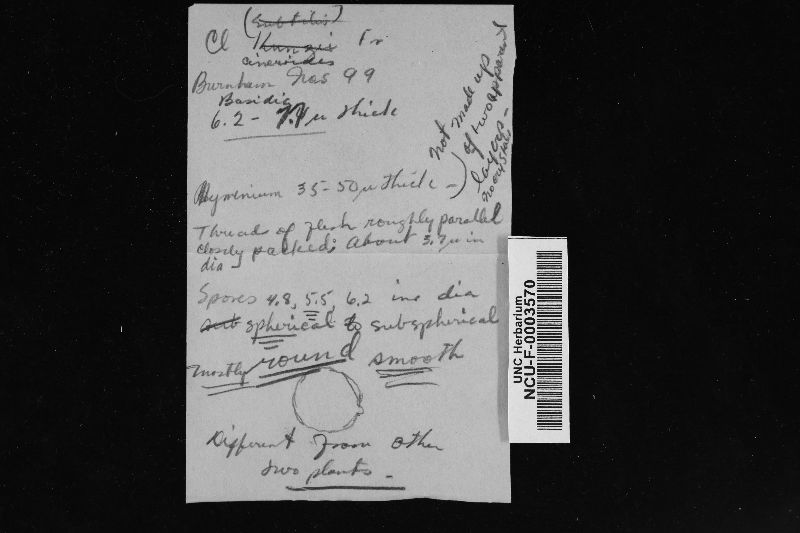 (Subtilis)
Cl Kunzei Fr
cineroides
Burnham No 99
Basidia
6.2 - 7.4µ thick
Hymenium 35-50µ thick -)
not made up
of two apparent
layers -
no crystals
Threads of flesh roughly parallel
closely packed; about 3.7µ in
dia
Spores 4.8, 5.5, 6.2 in dia
sub spherical to subspherical
mostly round smooth
Different from other
two plants -
UNC Herbarium
NCU-F-0003570